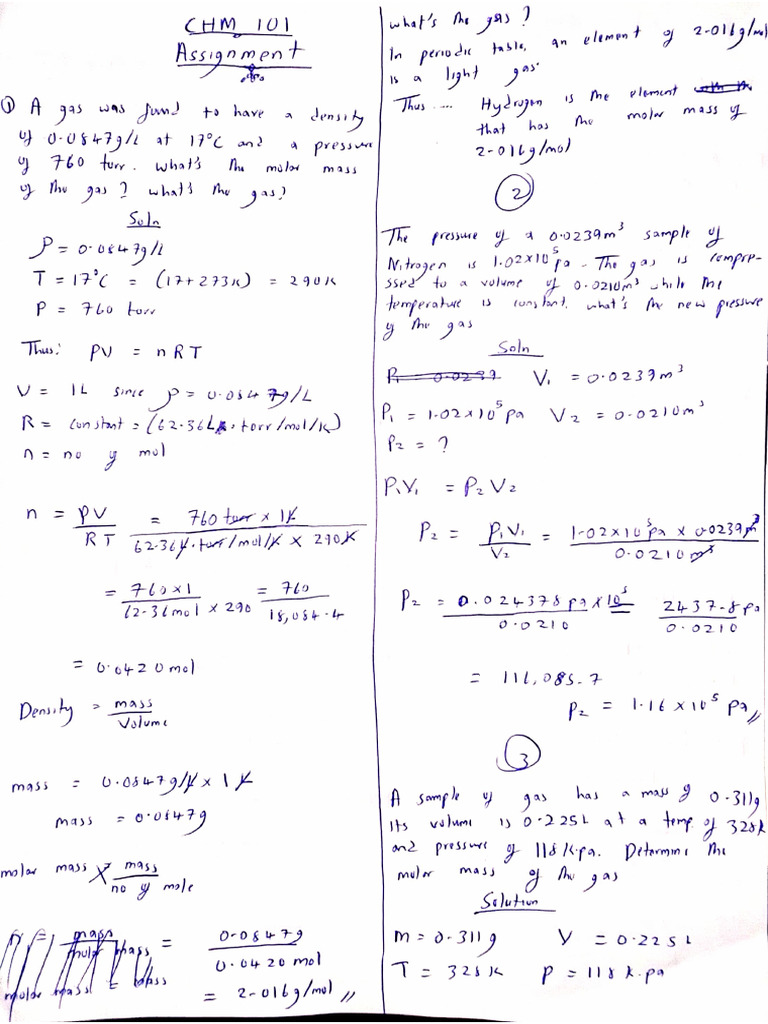 CHM 101
Assignment
① A gas was found to have a density
of 0.0847g/L at 17°C and a pressure
of 760 torr. what's the molar mass
of the gas? what's the gas?
Soln
ρ = 0.0847g/L
T = 17°C = (17+273K) = 290K
P = 760 torr
Thus: PV = nRT
V = 1L since ρ = 0.0847g/L
R = constant = (62.36L.torr/mol/K)
n = no of mol
n = PV/RT = 760 torr × 1L / 62.36L.torr/mol/K × 290K
= 760×1 / 62.36mol × 290 = 760 / 18,084.4
= 0.0420mol
Density = mass / Volume
mass = 0.0847g/L × 1L
mass = 0.0847g
molar mass = mass / no of mole
n = mass / molar mass = 0.0847g / 0.0420mol
molar mass = mass
= 2.016g/mol //
what's the gas?
In periodic table, an element of 2.016g/mol
is a light gas.
Thus .... Hydrogen is the element
that has the molar mass of
2.016g/mol
②
The pressure of a 0.0239m³ sample of
Nitrogen is 1.02×10⁵pa. The gas is compre-
ssed to a volume of 0.0210m³ while the
temperature is constant. what's the new pressure
of the gas
Soln
P₁ = 0.0239 V₁ = 0.0239m³
P₁ = 1.02×10⁵pa V₂ = 0.0210m³
P₂ = ?
P₁V₁ = P₂V₂
P₂ = P₁V₁ / V₂ = 1.02×10⁵pa × 0.0239m³ / 0.0210m³
P₂ = 0.024378pa×10⁵ / 0.0210 = 2437.8pa / 0.0210
= 116,085.7
P₂ = 1.16×10⁵pa //
③
A sample of gas has a mass of 0.311g
Its volume is 0.225L at a temp. of 328k
and pressure of 118k.pa. Determine the
molar mass of the gas
Solution
m = 0.311g V = 0.225L
T = 328K P = 118k.pa